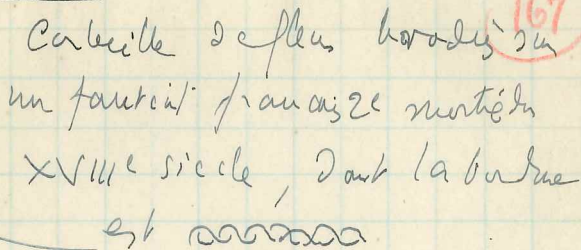 167
Corbeille de fleurs brodées sur
un fauteuil français 2e moitié du
XVIIIe siècle, dont la bordure
est